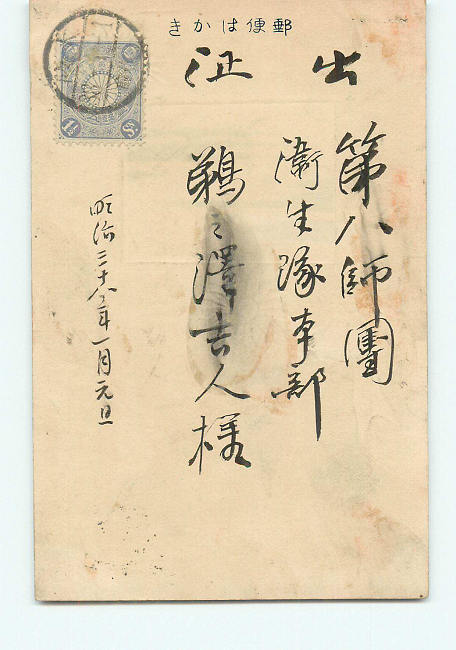 郵便はかき
出征
第八師團
衛生隊本部
鵜之澤吉人様
明治三十八年一月元旦